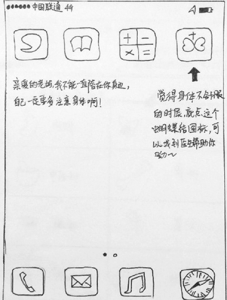 中国联通 4G
亲爱的老婆,我不能一直陪在你身边,
自己一定要多注意身体啊!
觉得身体不舒服
的时候,就点这个
蝴蝶结图标,可
以找到医生帮助你
哟~